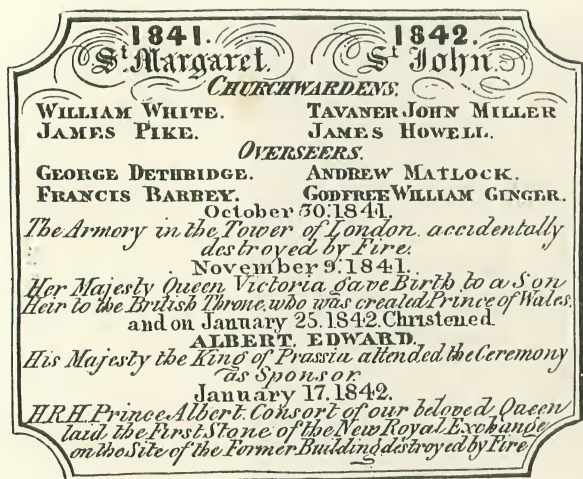 1841. 1842.
St. Margaret. St John.
CHURCHWARDENS.
WILLIAM WHITE. TAVANER JOHN MILLER
JAMES PIKE. JAMES HOWELL.
OVERSEERS.
GEORGE DETHBRIDGE. ANDREW MATLOCK.
FRANCIS BARBEY. GODFREE WILLIAM GINGER.
October 30. 1841.
The Armory in the Tower of London. accidentally
destroyed by Fire.
November 9. 1841.
Her Majesty Queen Victoria gave Birth to a Son
Heir to the British Throne. who was created Prince of Wales.
and on January 25. 1842. Christened.
ALBERT. EDWARD.
His Majesty the King of Prassia attended the Ceremony
as Sponsor.
January 17. 1842.
H.R.H. Prince Albert. Consort of our beloved Queen
laid the First Stone of the New Royal Exchange
on the Site of the Former Building destroyed by Fire